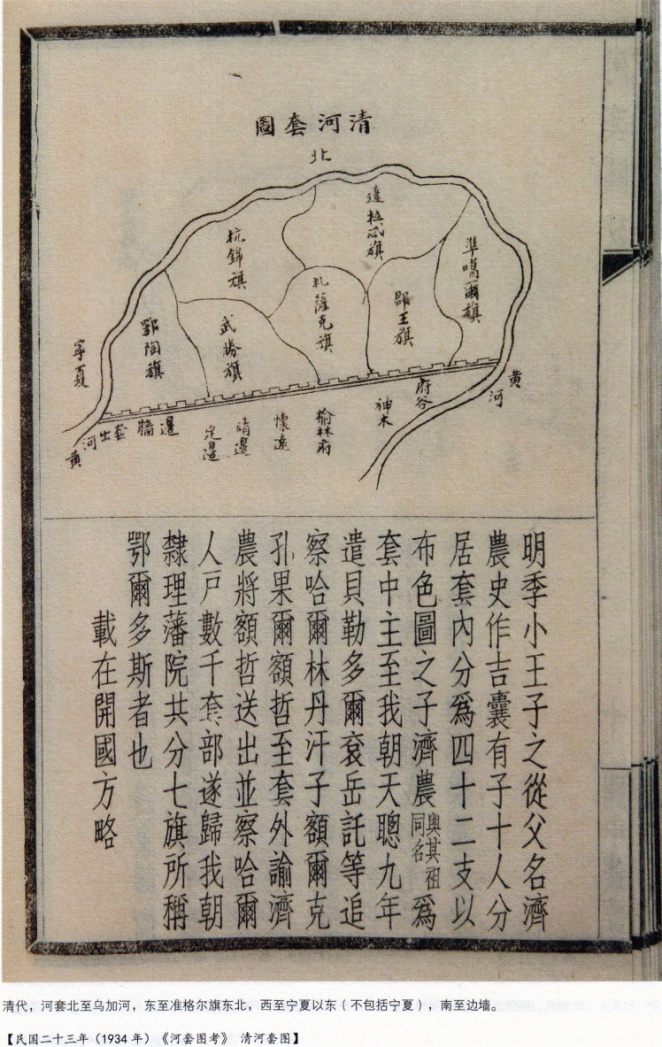 清河套圖
北
達拉忒旗
杭錦旗
準噶爾旗
札薩克旗
郡王旗
武勝旗
鄂陶旗
寧夏
黄河
府谷
神木
榆林府
懷遠
靖邊
定邊
邊牆
套出河黄
明季小王子之從父名濟
農史作吉囊有子十人分
居套內分爲四十二支以
布色圖之子濟農與其祖同名爲
套中主至我朝天聰九年
遣貝勒多爾袞岳託等追
察哈爾林丹汗子額爾克
孔果爾額哲至套外諭濟
農將額哲送出並察哈爾
人戶數千套部遂歸我朝
隸理藩院共分七旗所稱
鄂爾多斯者也
載在開國方略
清代，河套北至乌加河，东至准格尔旗东北，西至宁夏以东（不包括宁夏），南至边墙。
【民国二十三年（1934 年）《河套图考》 清河套图】